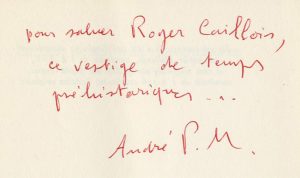 pour saluer Roger Caillois,
ce vestige de temps
préhistoriques...
André P. M.